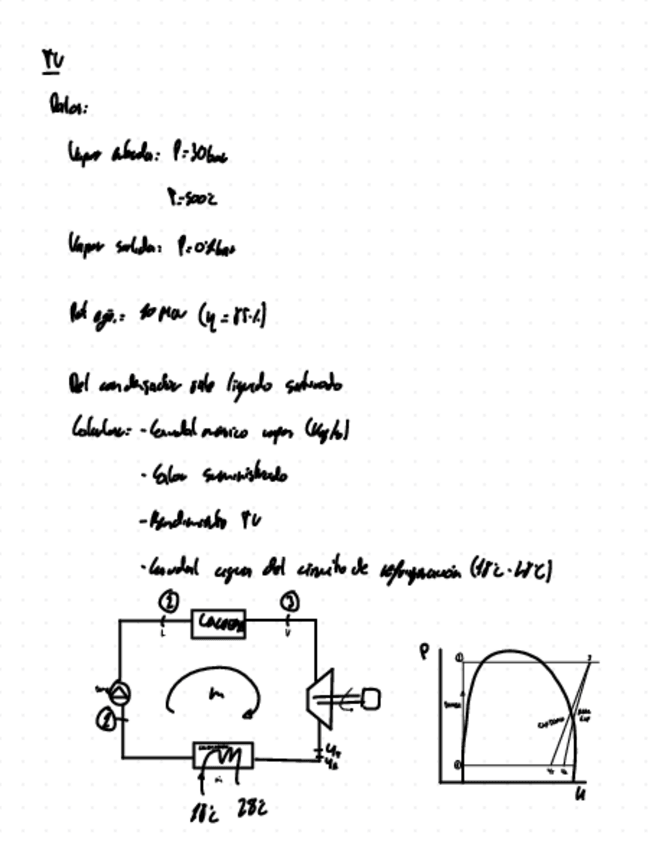 TV
Datos:
Vapor P=30bar
T=500ºc
Vapor salida: P=0'1bar
Pot 10 MW (η=85%)
Del condensador sale líquido saturado
Calcular: - Caudal másico vapor (Kg/s)
- Calor suministrado
- Rendimiento TV
- Caudal agua del circuito de refrigeración (18ºc-28ºc)
2 CALDERA 3
L V
m
1
4r
4s
18ºc 28ºc
P
2 3
1 4s 4r